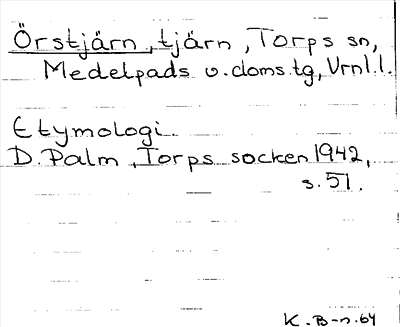 Örstjärn, tjärn, Torps sn,
Medelpads v. doms.tg, Vrnl.l.
Etymologi.
D. Palm, Torps socken 1942,
s. 51.
K. B-n. 64